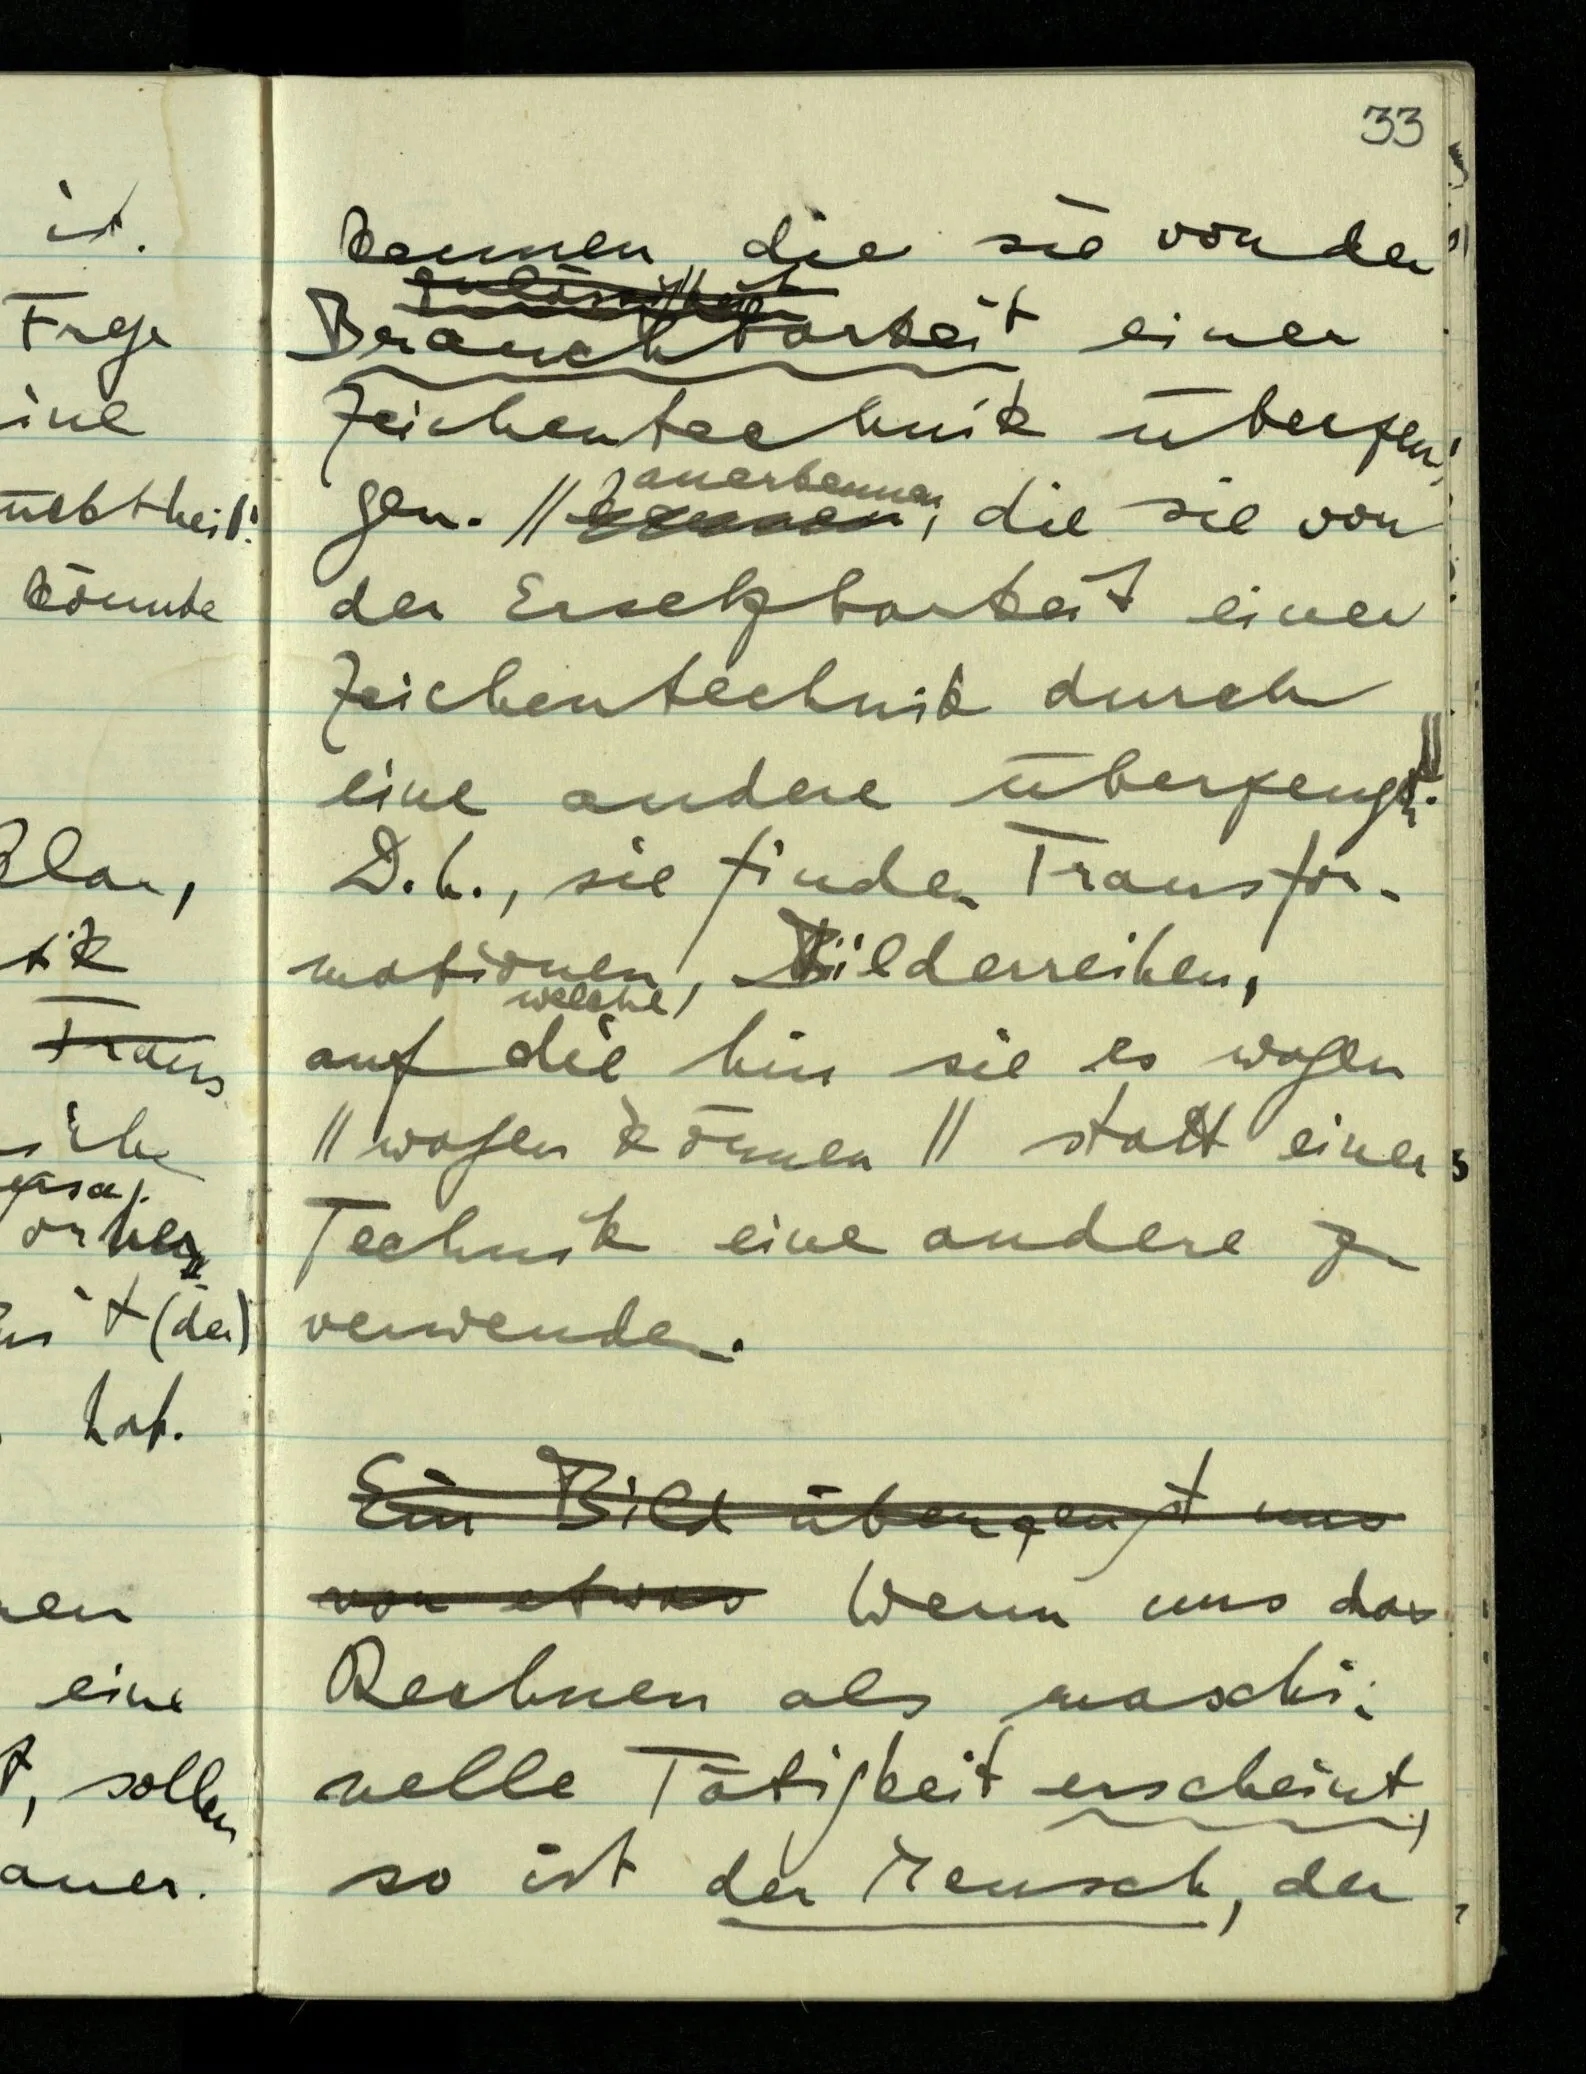 ist.
Frege
eine
könnte
klar,
tik
Trans
hat.
eine
, sollen
33
kennen, die sie von der
Zulässigkeit
Brauchbarkeit einer
Zeichentechnik überzeu¬
gen. // anerkennen
kennen, die sie von
der Ersetzbarkeit einer
Zeichentechnik durch
eine andere überzeugen. //
D.h., sie finden Transfor-
mationen, Bilderreihen,
welche
auf die hin sie es wagen
// wagen können // statt einer
Technik eine andere zu
verwenden.
Ein Bild überzeugt uns
von etwas Wenn uns das
Rechnen als maschi-
nelle Tätigkeit erscheint,
so ist der Mensch, der